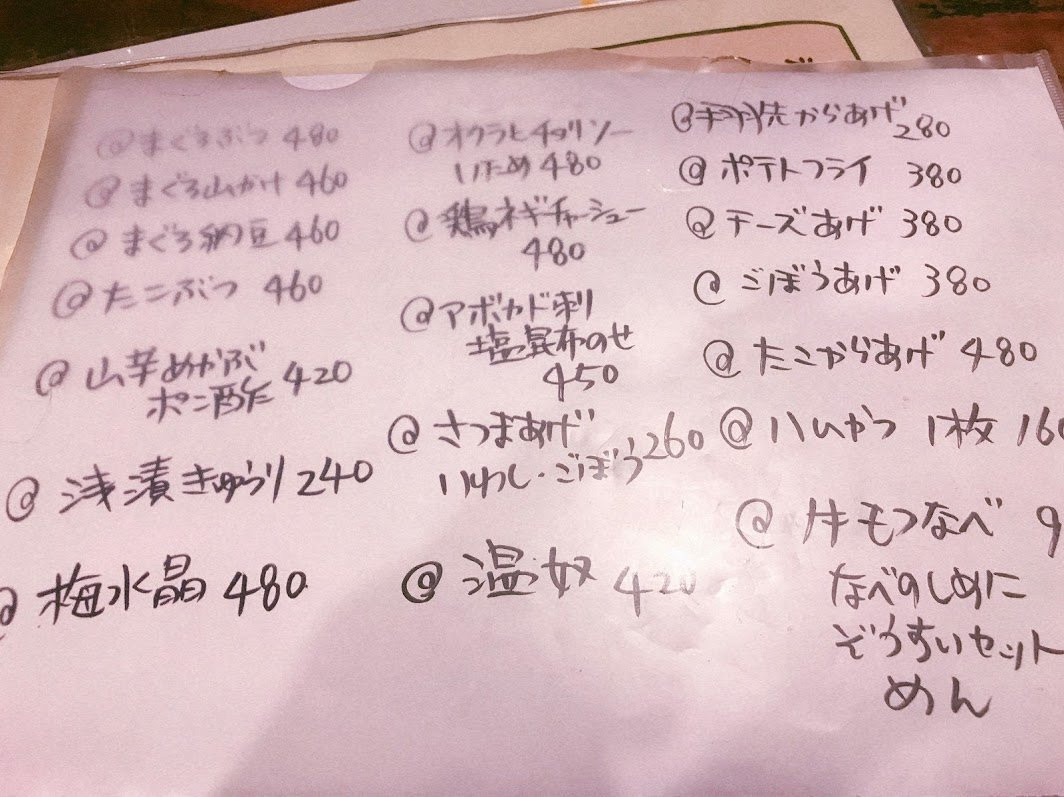 @まぐろぶつ 480
@まぐろ山かけ 460
@まぐろ納豆 460
@たこぶつ 460
@山芋めかぶ
ポン酢 420
@浅漬きゅうり 240
@梅水晶 480
@オクラとチョリソー
いため 480
@鶏ネギチャーシュー
480
@アボカド刺
塩昆布のせ
450
@さつまあげ 260
いわし・ごぼう
@温奴 420
@手羽先からあげ
280
@ポテトフライ 380
@チーズあげ 380
@ごぼうあげ 380
@たこからあげ 480
@ハムかつ 1枚 160
@牛もつなべ 9
なべのしめに
ぞうすいセット
めん